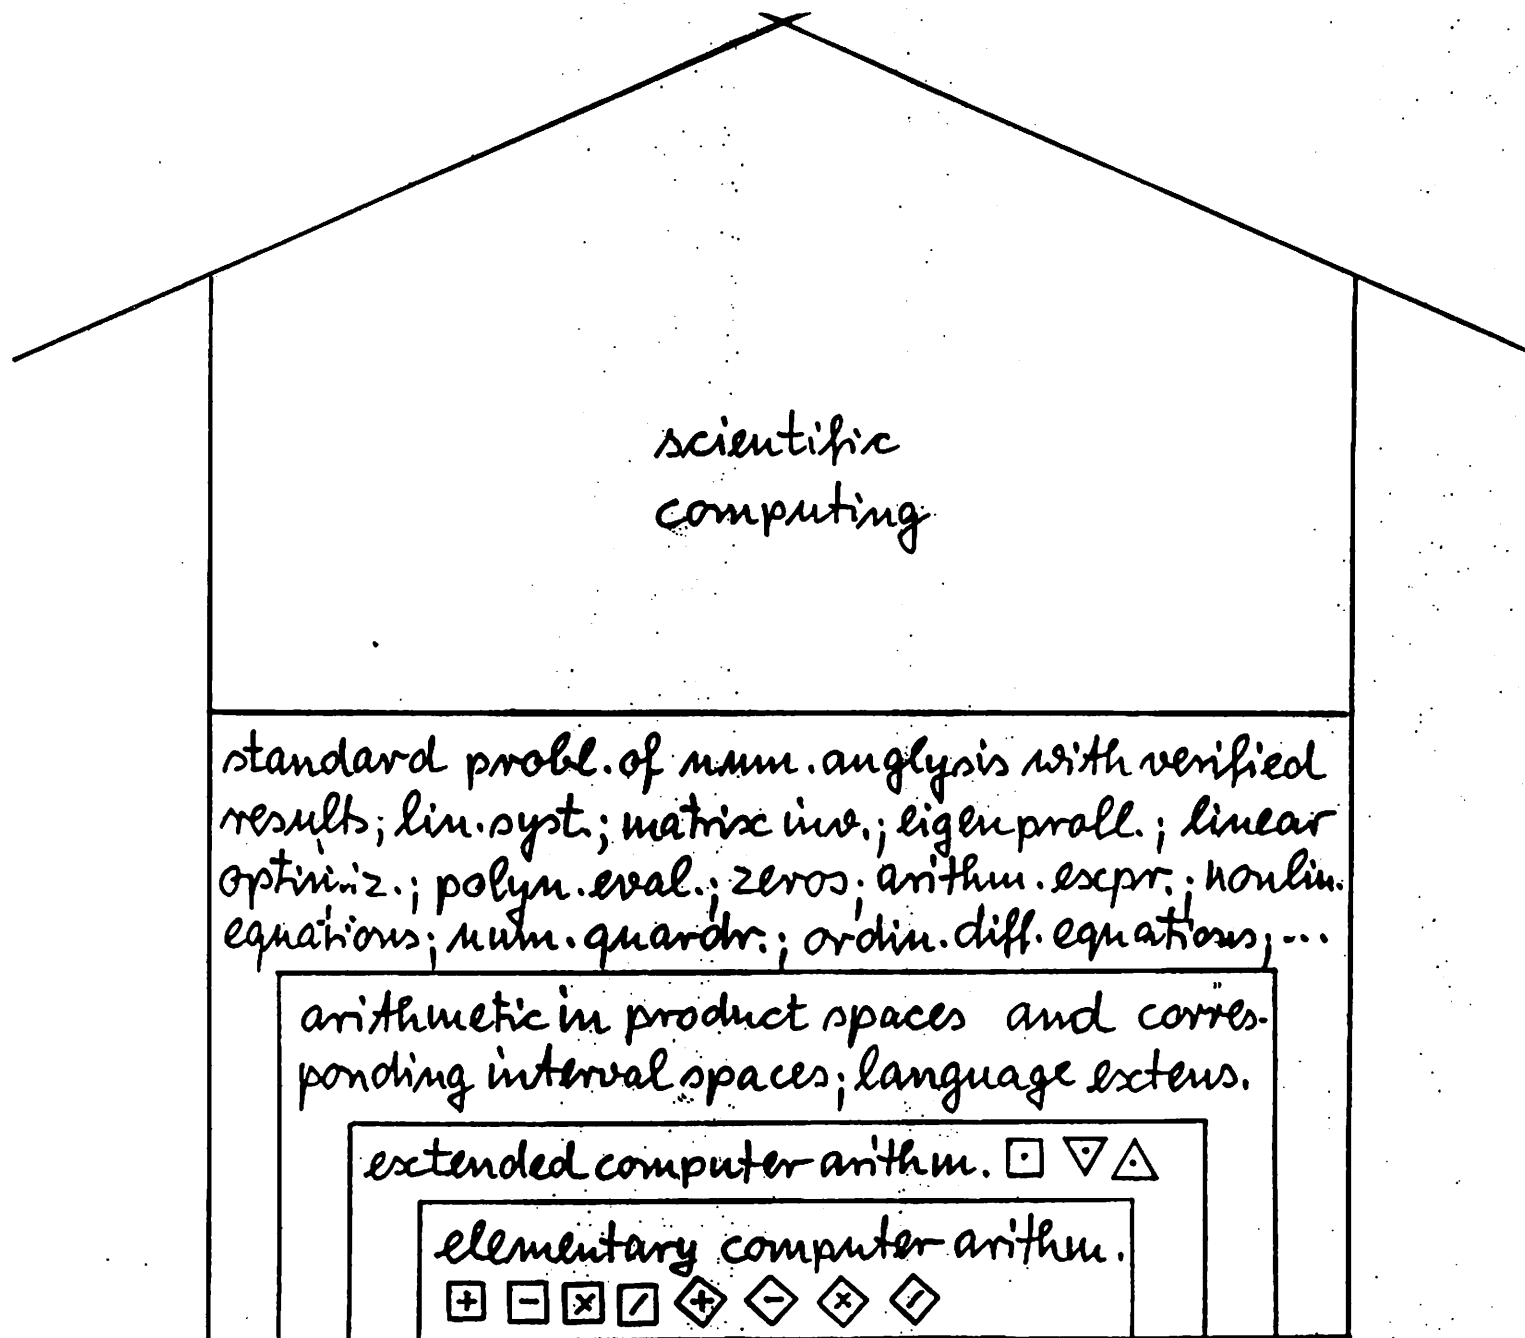 scientific
computing
standard probl. of num. analysis with verified
results; lin. syst.; matrix inv.; eigenprobl.; linear
optimiz.; polyn. eval.; zeros; arithm. expr.; nonlin.
equations; num. quardr.; ordin. diff. equations; ...
arithmetic in product spaces and corres-
ponding interval spaces; language extens.
extended computer arithm. ⊡ ▽ △
elementary computer arithm.
+ - × / + - × /